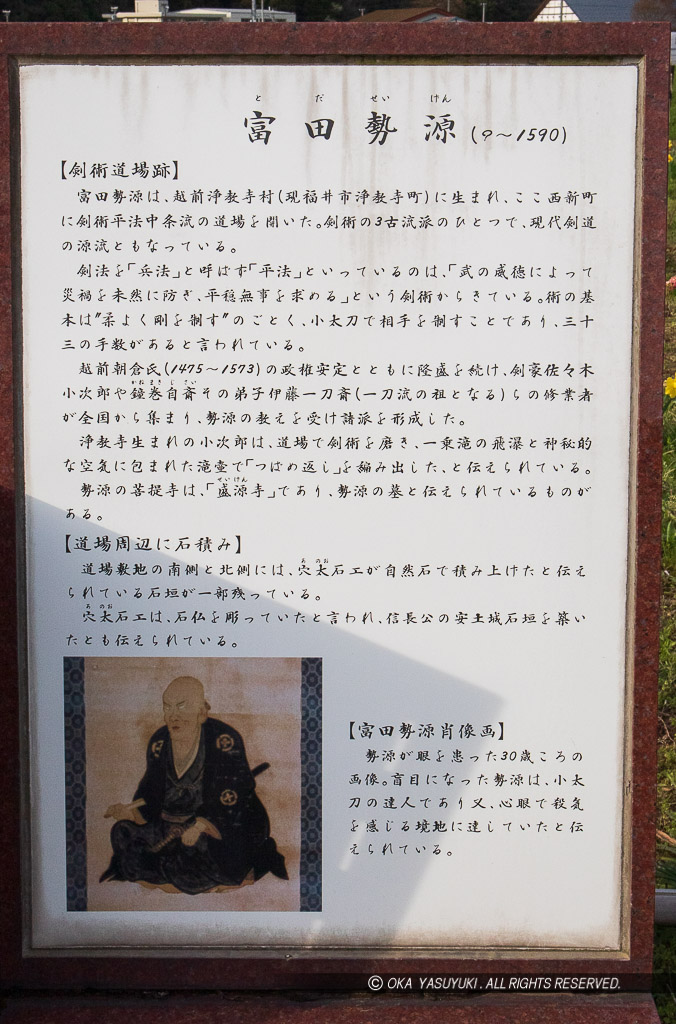 とだせいげん
富田勢源(?～1590)
【剣術道場跡】
富田勢源は、越前浄教寺村(現福井市浄教寺町)に生まれ、ここ西新町
に剣術平法中条流の道場を開いた。剣術の3古流派のひとつで、現代剣道
の源流ともなっている。
剣法を「兵法」と呼ばす「平法」といっているのは、「武の威徳によって
災禍を未然に防ぎ、平穏無事を求める」という剣術からきている。術の基
本は"柔よく剛を制す"のごとく、小太刀で相手を制すことであり、三十
三の手数があると言われている。
越前朝倉氏(1475～1573)の政権安定とともに隆盛を続け、剣豪佐々木
かねまきじさい
小次郎や鐘巻自斎その弟子伊藤一刀斎(一刀流の祖となる)らの修業者
が全国から集まり、勢源の教えを受け諸派を形成した。
浄教寺生まれの小次郎は、道場で剣術を磨き、一乗滝の飛瀑と神秘的
な空気に包まれた滝壷で「つばめ返し」を編み出した、と伝えられている。
せいげん
勢源の菩提寺は、「盛源寺」であり、勢源の墓と伝えられているものが
ある。
【道場周辺に石積み】
あのお
道場敷地の南側と北側には、穴太石工が自然石で積み上げたと伝え
られている石垣が一部残っている。
あのお
穴太石工は、石仏を彫っていたと言われ、信長公の安土城石垣を築い
たとも伝えられている。
【富田勢源肖像画】
勢源が眼を患った30歳ころの
画像。盲目になった勢源は、小太
刀の達人であり又、心眼で殺気
を感じる境地に達していたと伝
えられている。
© OKA YASUYUKI. ALL RIGHTS RESERVED.